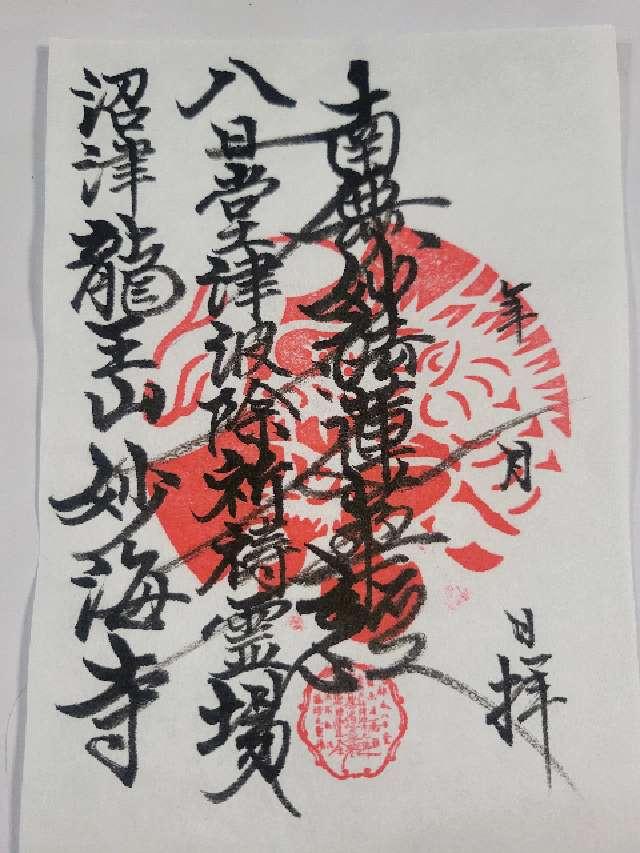 年 月 日拝
南無妙法蓮華経
八日堂津波除祈祷霊場
沼津龍王山妙海寺